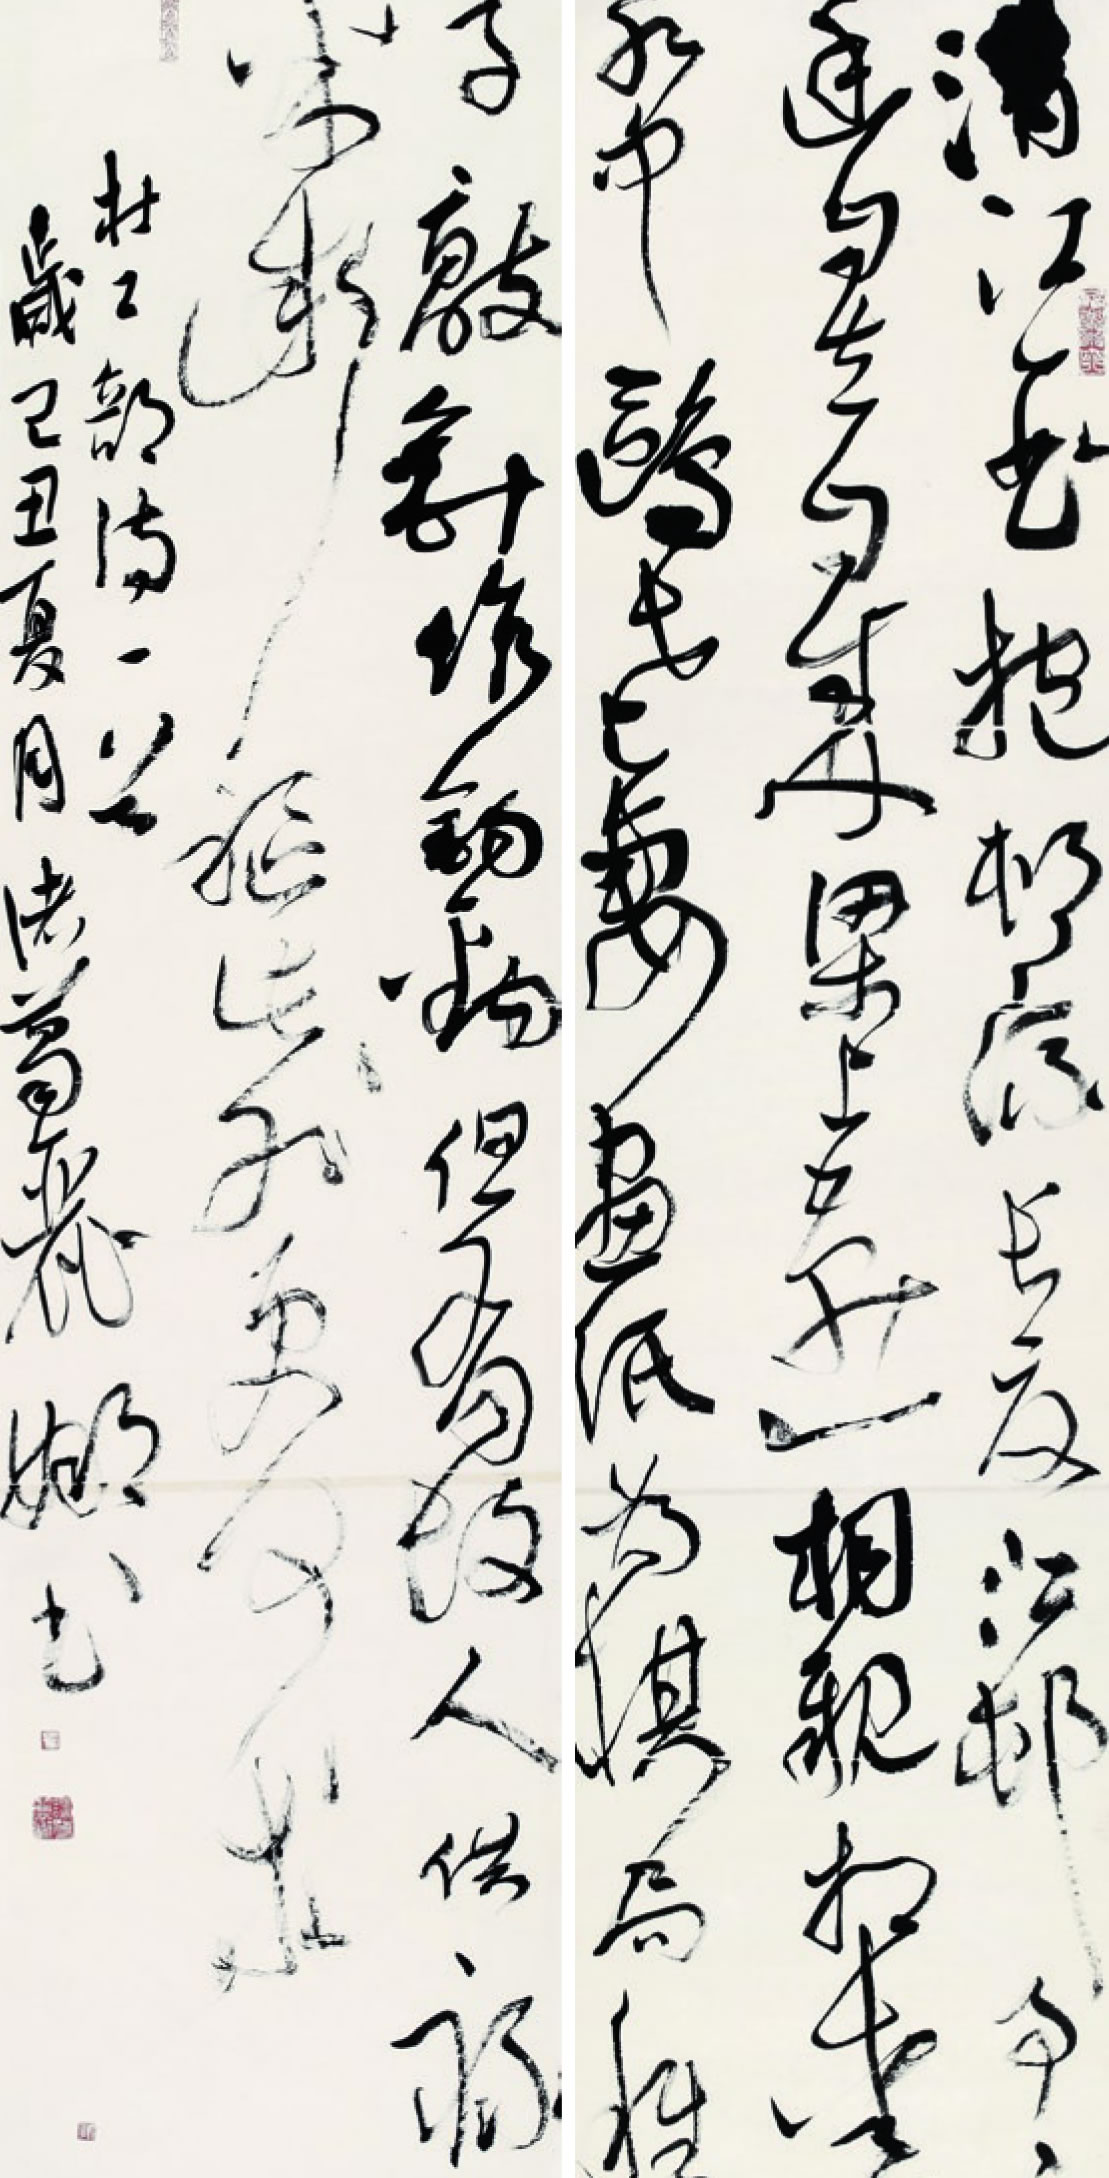 清江一曲抱村流長夏江村事々
幽自去自来梁上燕相親相近
水中鷗老妻畫紙為棋局稚
子敲針作釣鉤但有故人供祿
米微軀此外更何求
杜工部詩一首
歲己丑夏月諸葛麗娜書